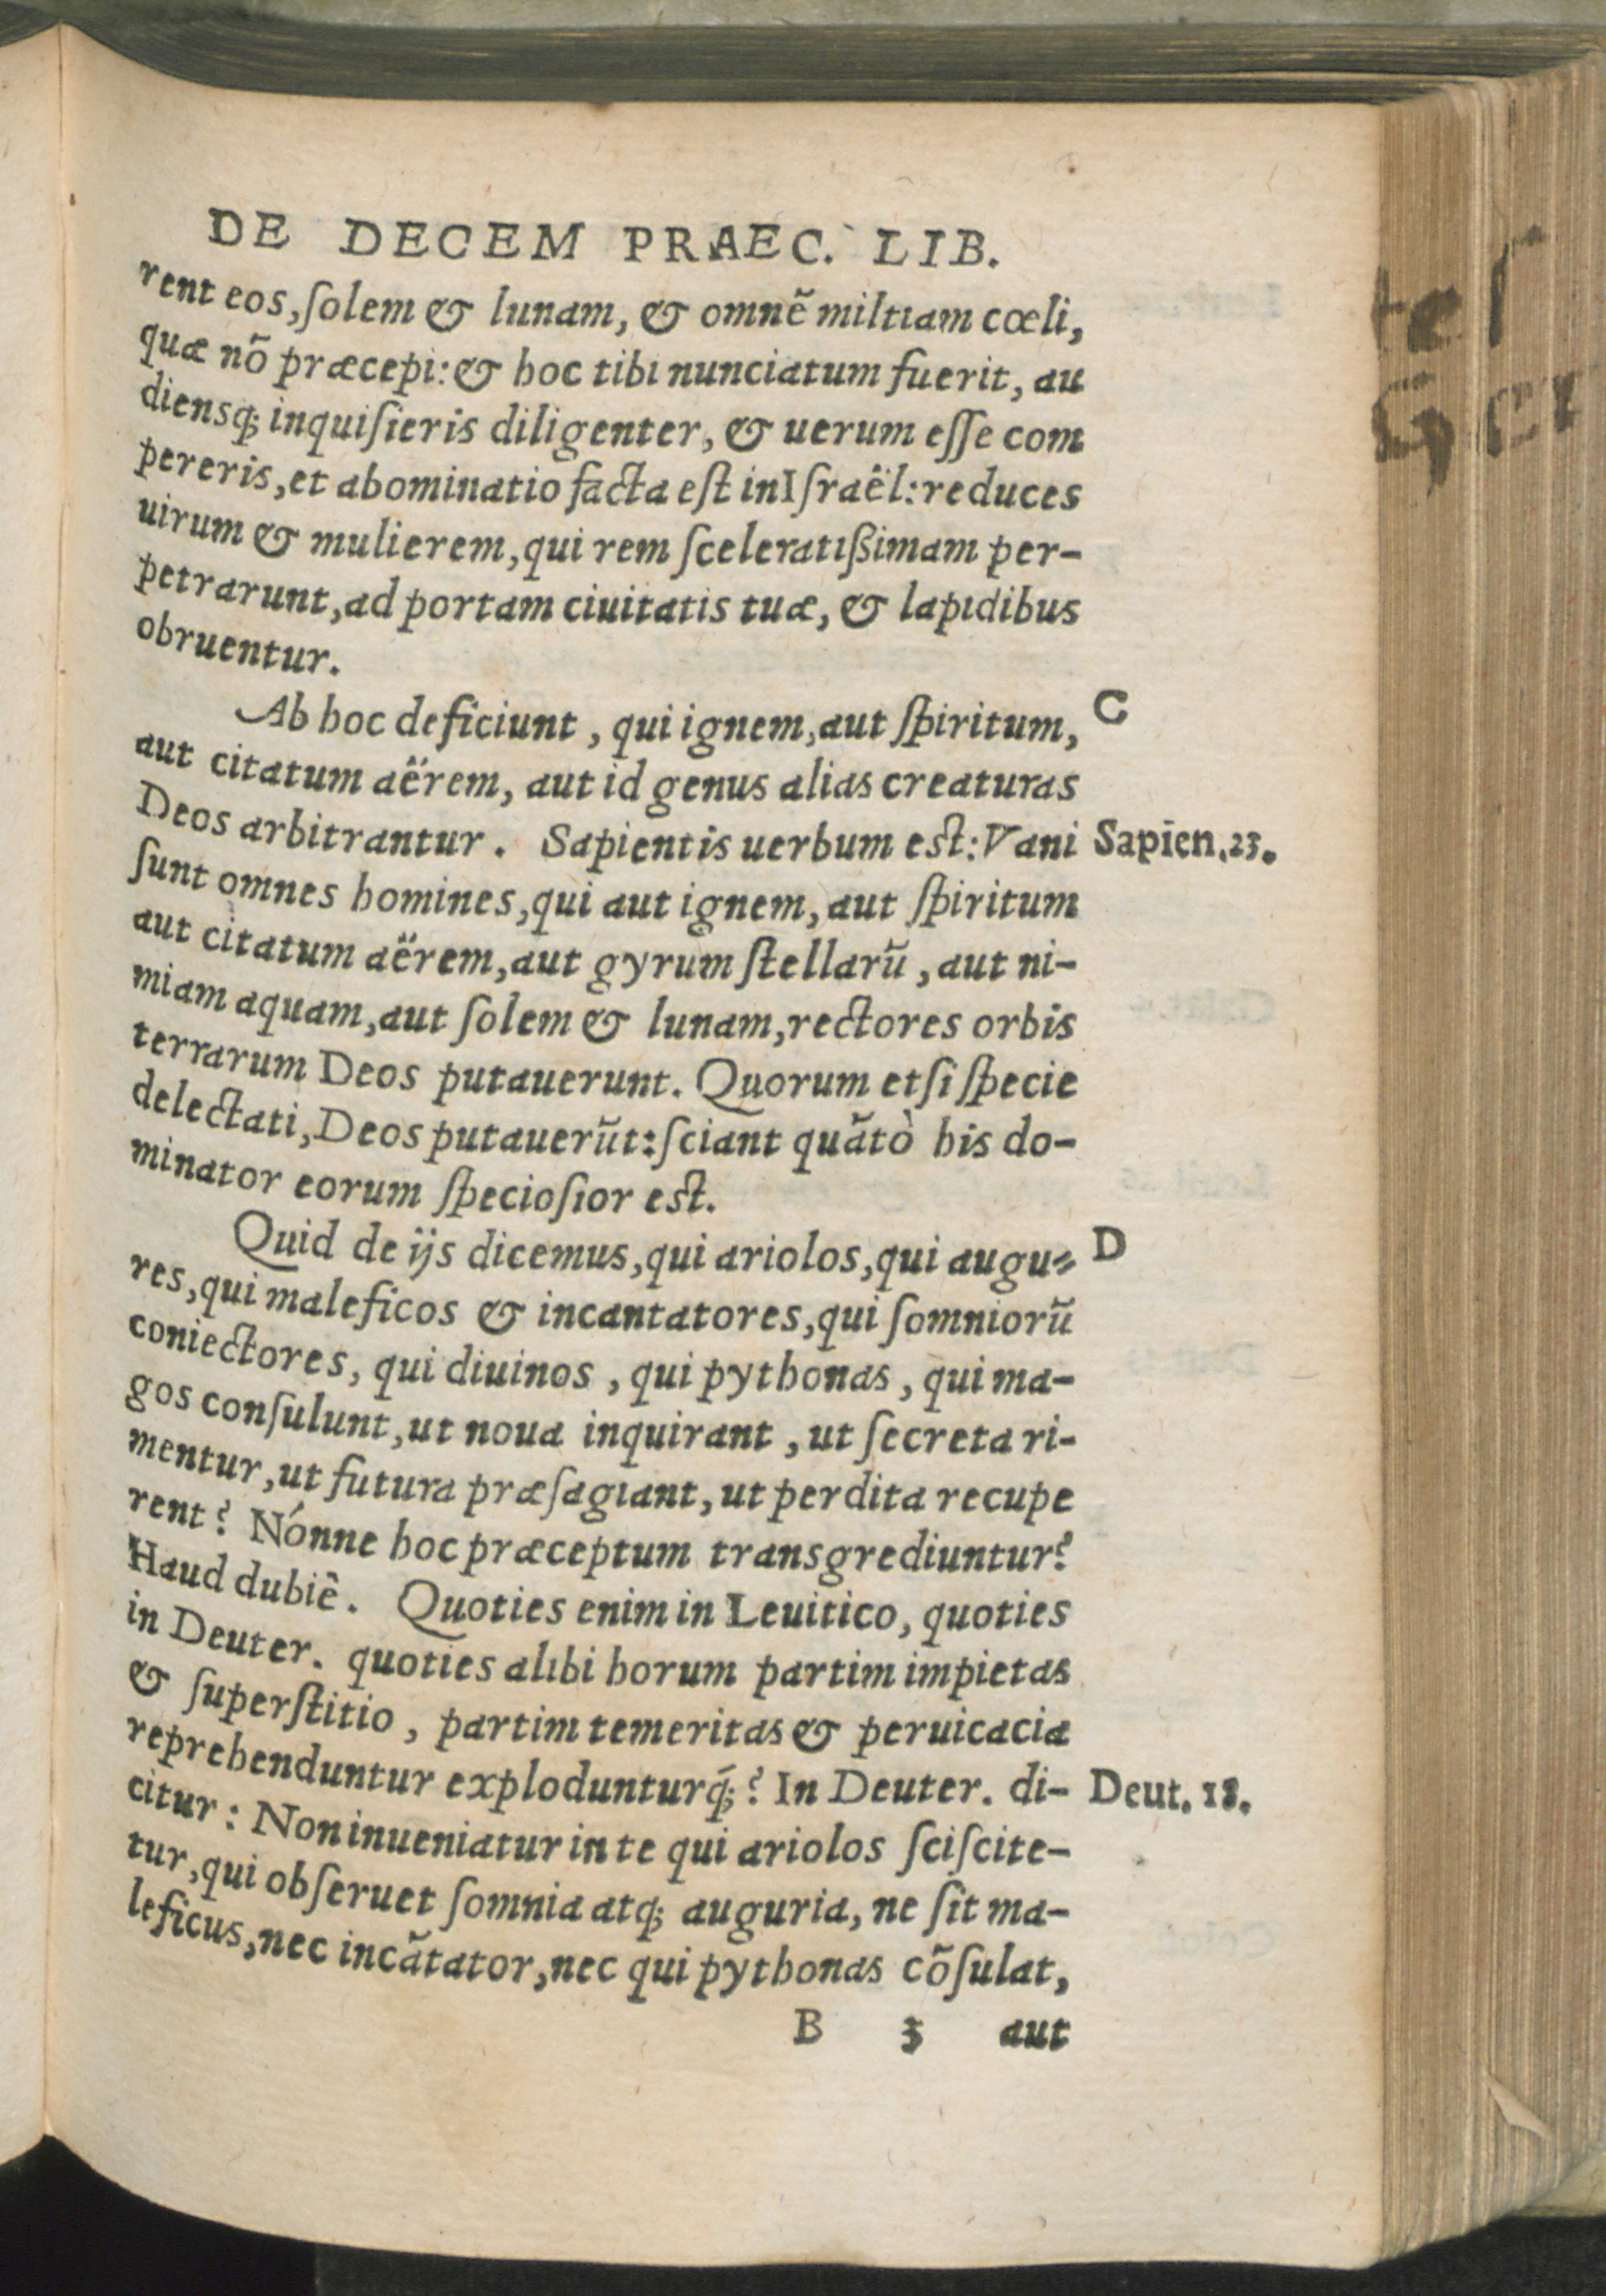 DE DECEM PRAEC. LIB.
rent eos, ſolem & lunam, & omnẽ miltiam cœli,
quæ nõ præcepi: & hoc tibi nunciatum fuerit, au
diensq; inquiſieris diligenter, & uerum eſſe com
pereris, et abominatio facta eſt in Iſraêl: reduces
uirum & mulierem, qui rem ſceleratißimam per-
petrarunt, ad portam ciuitatis tuæ, & lapidibus
obruentur.
Ab hoc deficiunt, qui ignem, aut ſpiritum, C
aut citatum aërem, aut id genus alias creaturas
Deos arbitrantur. Sapientis uerbum eſt: Vani Sapiēn. 23.
ſunt omnes homines, qui aut ignem, aut ſpiritum
aut citatum aërem, aut gyrum ſtellarũ, aut ni-
miam aquam, aut ſolem & lunam, rectores orbis
terrarum Deos putauerunt. Quorum etſi ſpecie
delectati, Deos putauerũt: ſciant quãtò his do-
minator eorum ſpecioſior eſt.
Quid de ijs dicemus, qui ariolos, qui augu- D
res, qui maleficos & incantatores, qui ſomniorũ
coniectores, qui diuinos, qui pythonas, qui ma-
gos conſulunt, ut noua inquirant, ut ſecreta ri-
mentur, ut futura præſagiant, ut perdita recupe
rent? Nónne hoc præceptum transgrediuntur?
Haud dubiê. Quoties enim in Leuitico, quoties
in Deuter. quoties alibi horum partim impietas
& ſuperſtitio, partim temeritas & peruicacia
reprehenduntur explodunturq́;? In Deuter. di- Deut. 18.
citur: Non inueniatur in te qui ariolos ſciſcite-
tur, qui obſeruet ſomnia atq; auguria, ne ſit ma-
leficus, nec incãtator, nec qui pythonas cõſulat,
B 3 aut